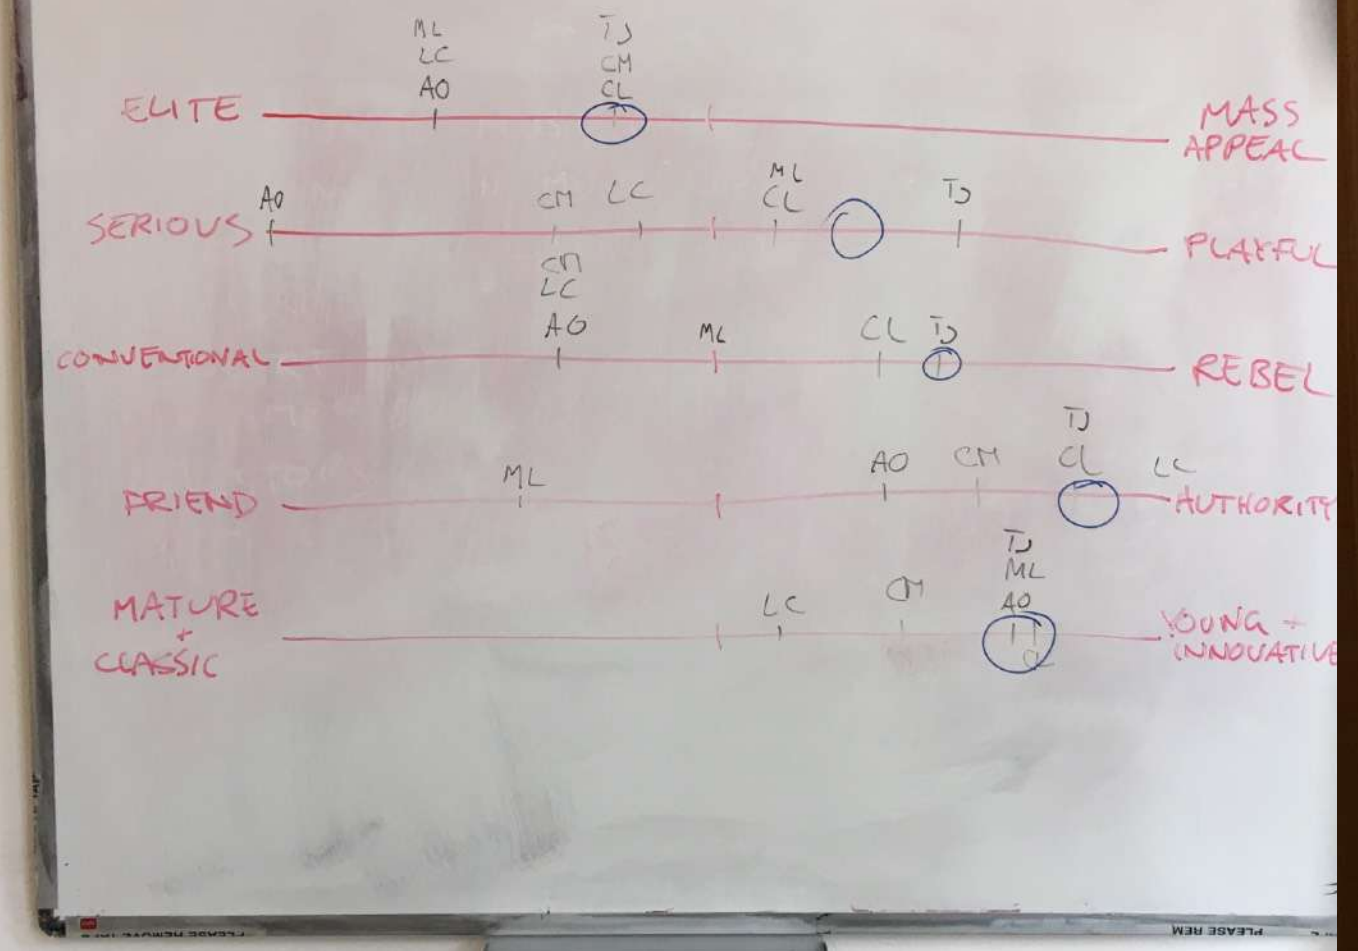 ML
LC
AO
TJ
CM
CL
ELITE
MASS
APPEAL
AO
CM
LC
ML
CL
TJ
SERIOUS
PLAYFUL
CM
LC
AO
ML
CL
TJ
CONVENTIONAL
REBEL
ML
AO
CM
TJ
CL
LC
FRIEND
AUTHORITY
LC
CM
TJ
ML
AO
CL
MATURE
+
CLASSIC
YOUNG +
INNOVATIVE
PLEASE REM